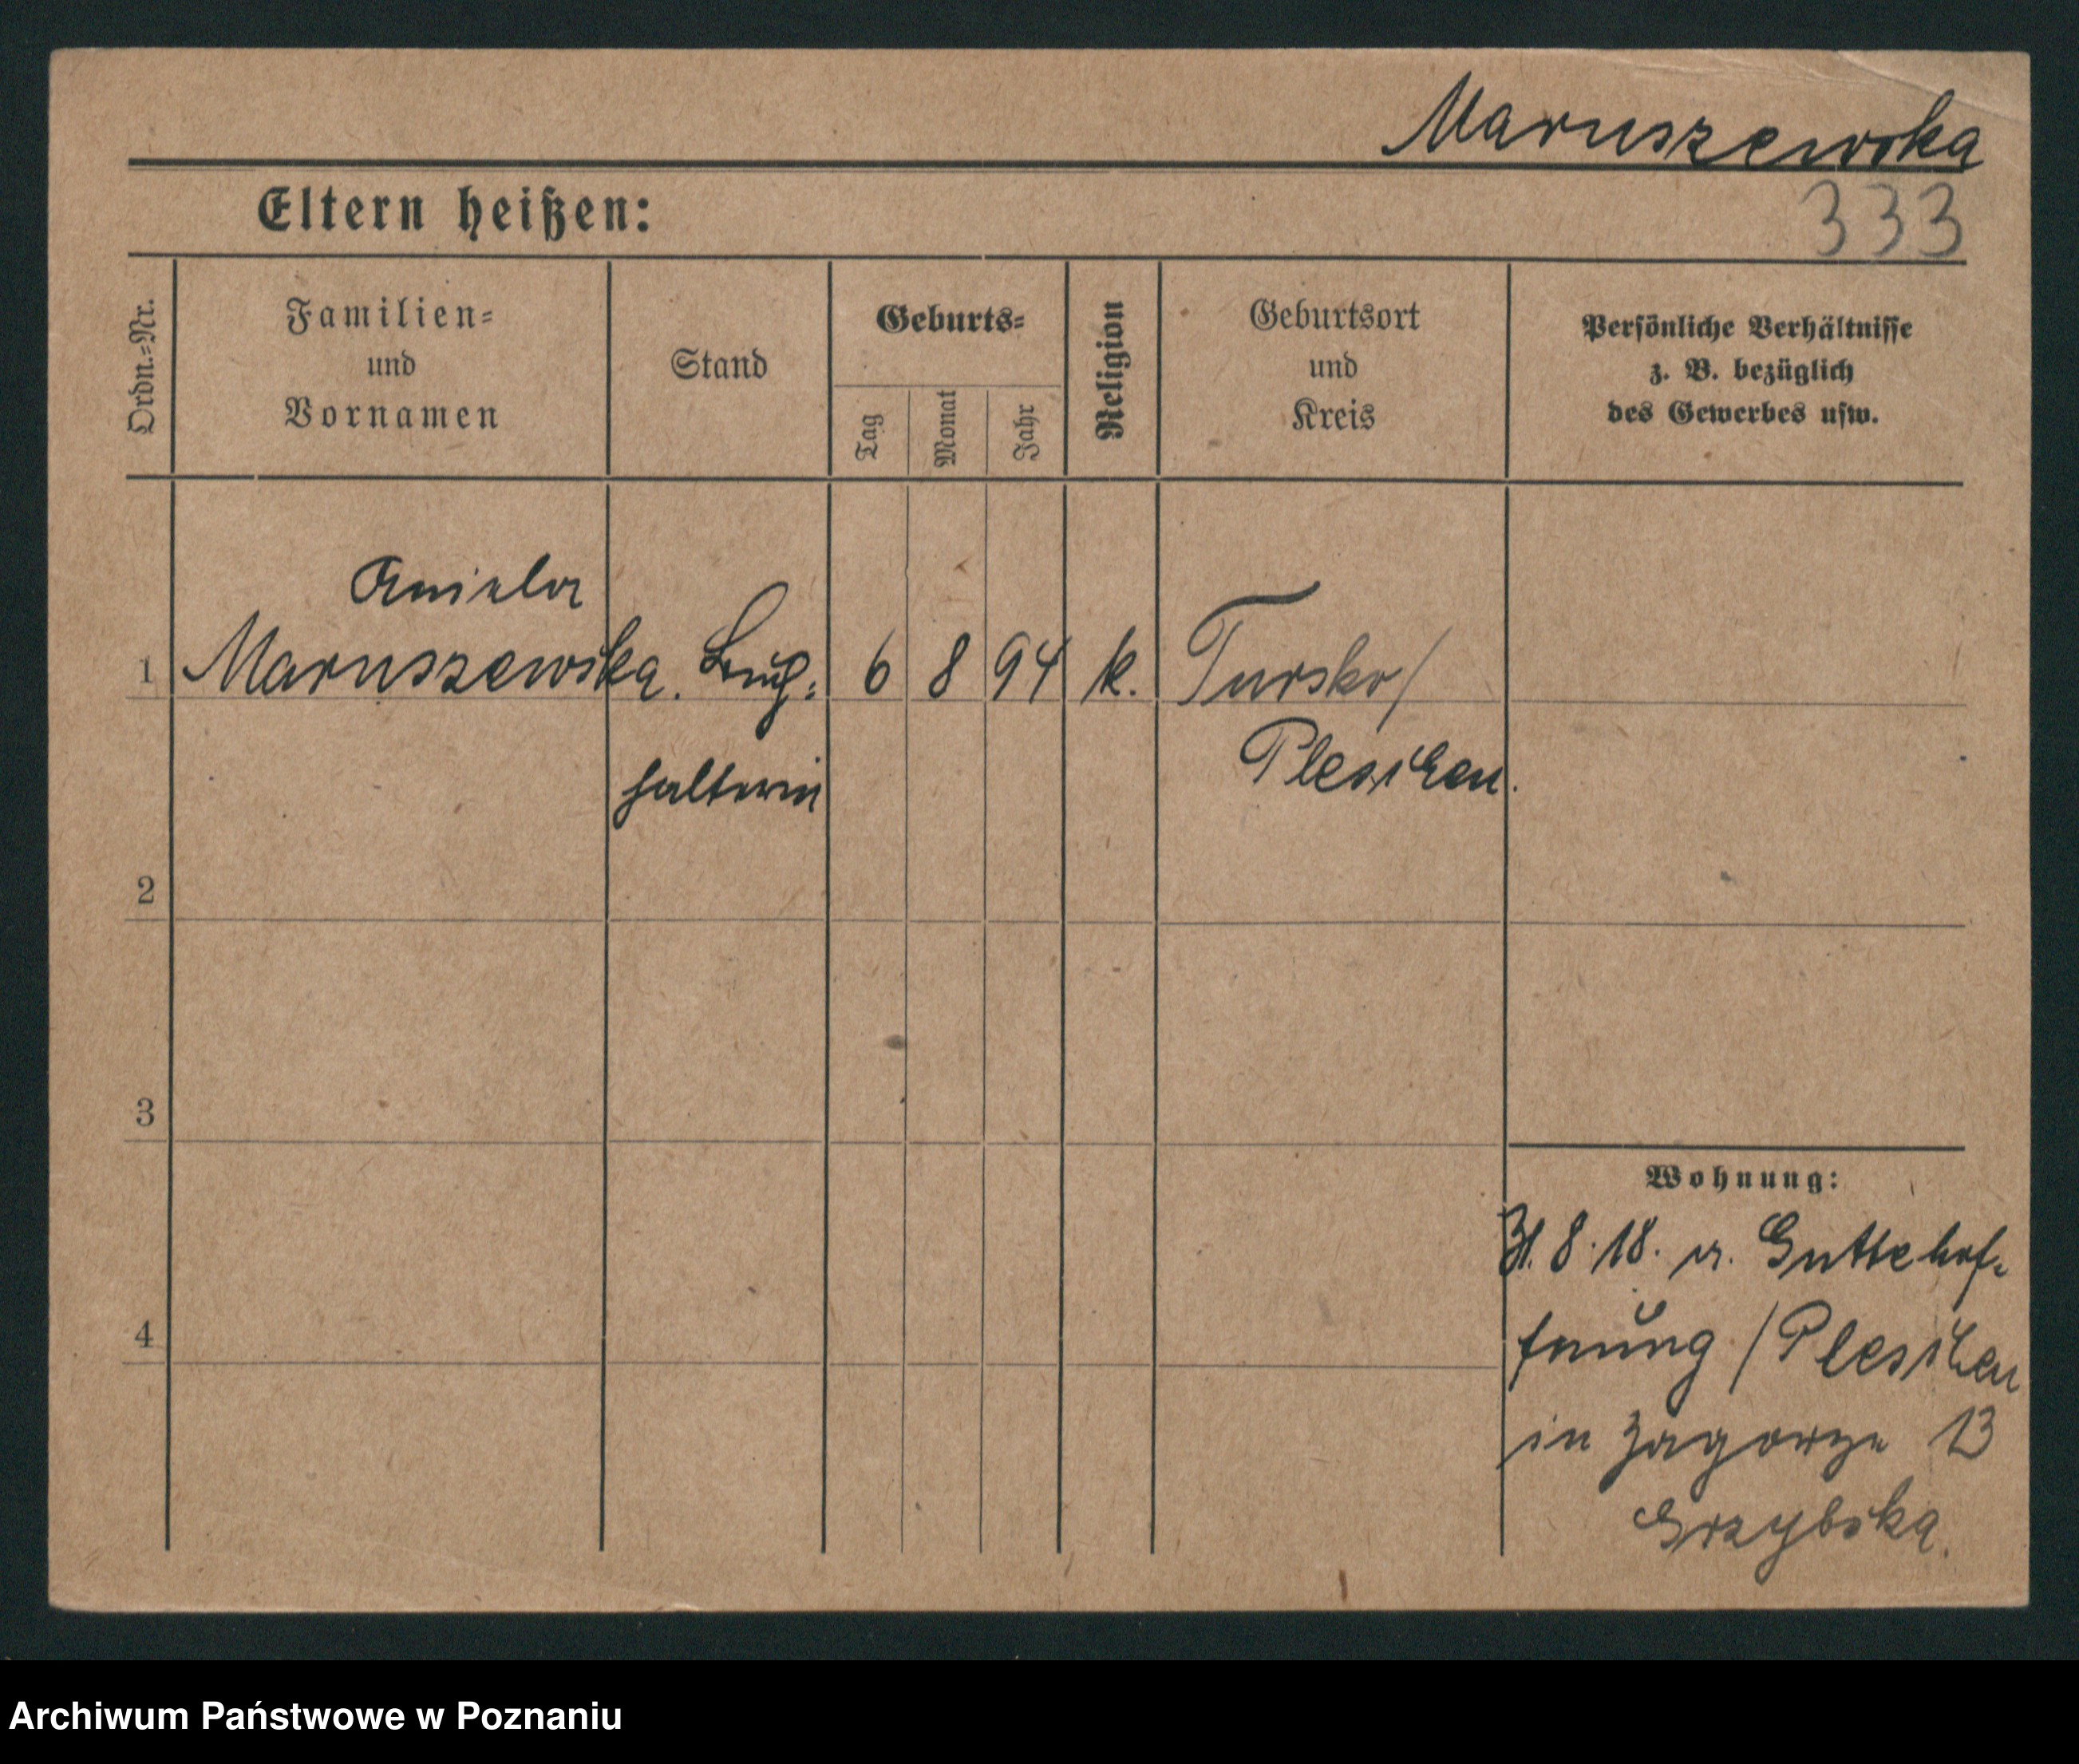 Maruszewska
Eltern heißen:
333
Ordn.=Nr.
Familien=
und
Vornamen
Stand
Geburts=
Tag
Monat
Jahr
Religion
Geburtsort
und
Kreis
Persönliche Verhältnisse
z. B. bezüglich
des Gewerbes usw.
Aniela
1 Maruszewska. Buch= 6 8 94 k. Tursko/
Pleschen.
halterin
2
3
4
Wohnung:
31.8.18. v. Guttehof=
fnung / Pleschen
in Zagorze 13
Grzybska.
Archiwum Państwowe w Poznaniu